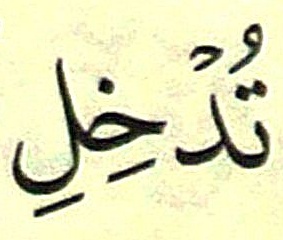 تُدْخِلِ